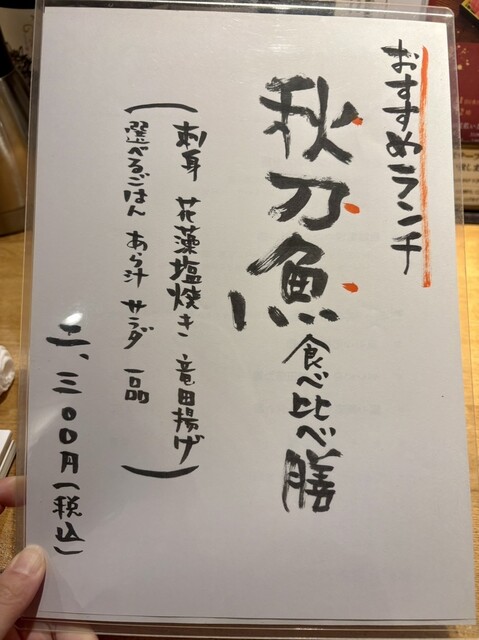 おすすめランチ
秋刀魚食べ比べ膳
(刺身 花藻塩焼き 竜田揚げ
選べるごはん あら汁 サラダ 一品)
二、三〇〇円(税込)